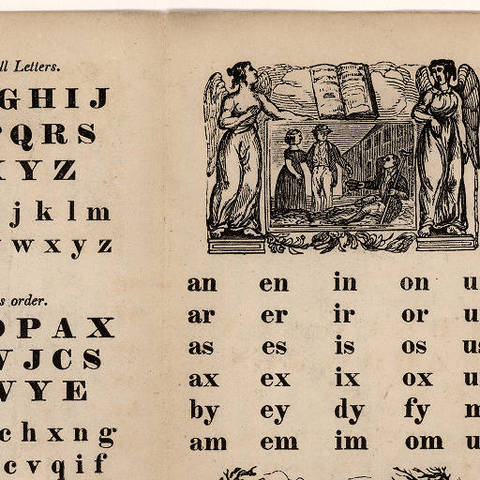 ll Letters.
GHIJ
PQRS
XYZ
j k l m
w x y z
s order.
O P A X
V J C S
V Y E
c h x n g
c v q i f
an en in on u
ar er ir or u
as es is os us
ax ex ix ox u
by ey dy fy m
am em im om u